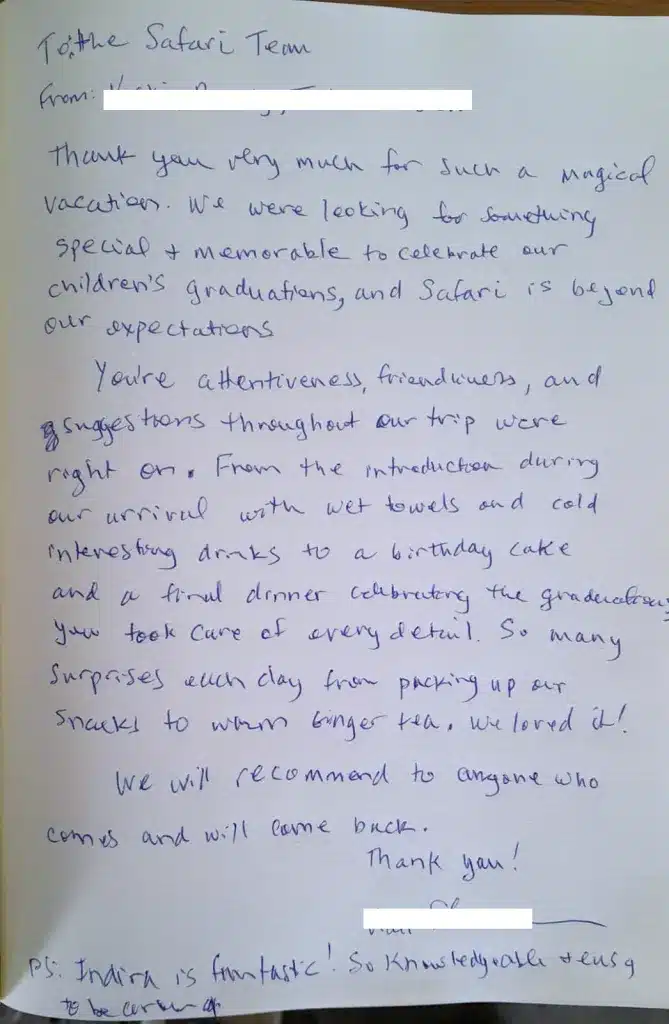 To: the Safari Team
From:
Thank you very much for such a magical
vacation. We were looking for something
special + memorable to celebrate our
children's graduations, and Safari is beyond
our expectations
You're attentiveness, friendliness, and
suggestions throughout our trip were
right on. From the introduction during
our arrival with wet towels and cold
interesting drinks to a birthday cake
and a final dinner celebrating the graduations,
you took care of every detail. So many
surprises each day from packing up our
snacks to warm Ginger tea. We loved it!
We will recommend to anyone who
comes and will come back.
Thank you!
PS: Indira is fantastic! So knowledgeable + easy
to be